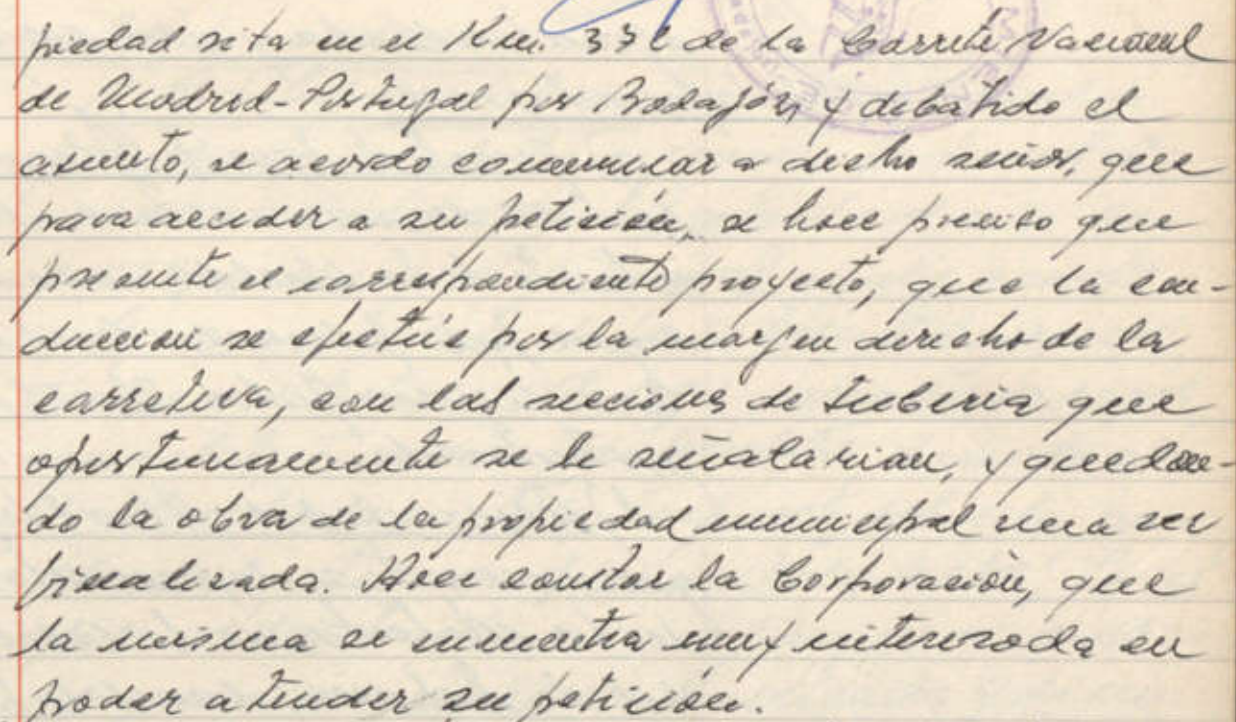 piedad sita en el Km. 332 de la Carrete Nacional
de Madrid-Portugal por Badajoz, y debatido el
asunto, se acordo comunicar a dicho señor, que
para acceder a su petición, se hace preciso que
presente el correspondiente proyecto, que la con-
duccion se efectúe por la margen derecho de la
carretera, con las secciones de tuberia que
oportunamente se le señalarian, y quedan-
do la obra de la propiedad municipal una vez
finalizada. Hace constar la Corporación, que
la misma se encuentra muy interesada en
poder atender su petición.